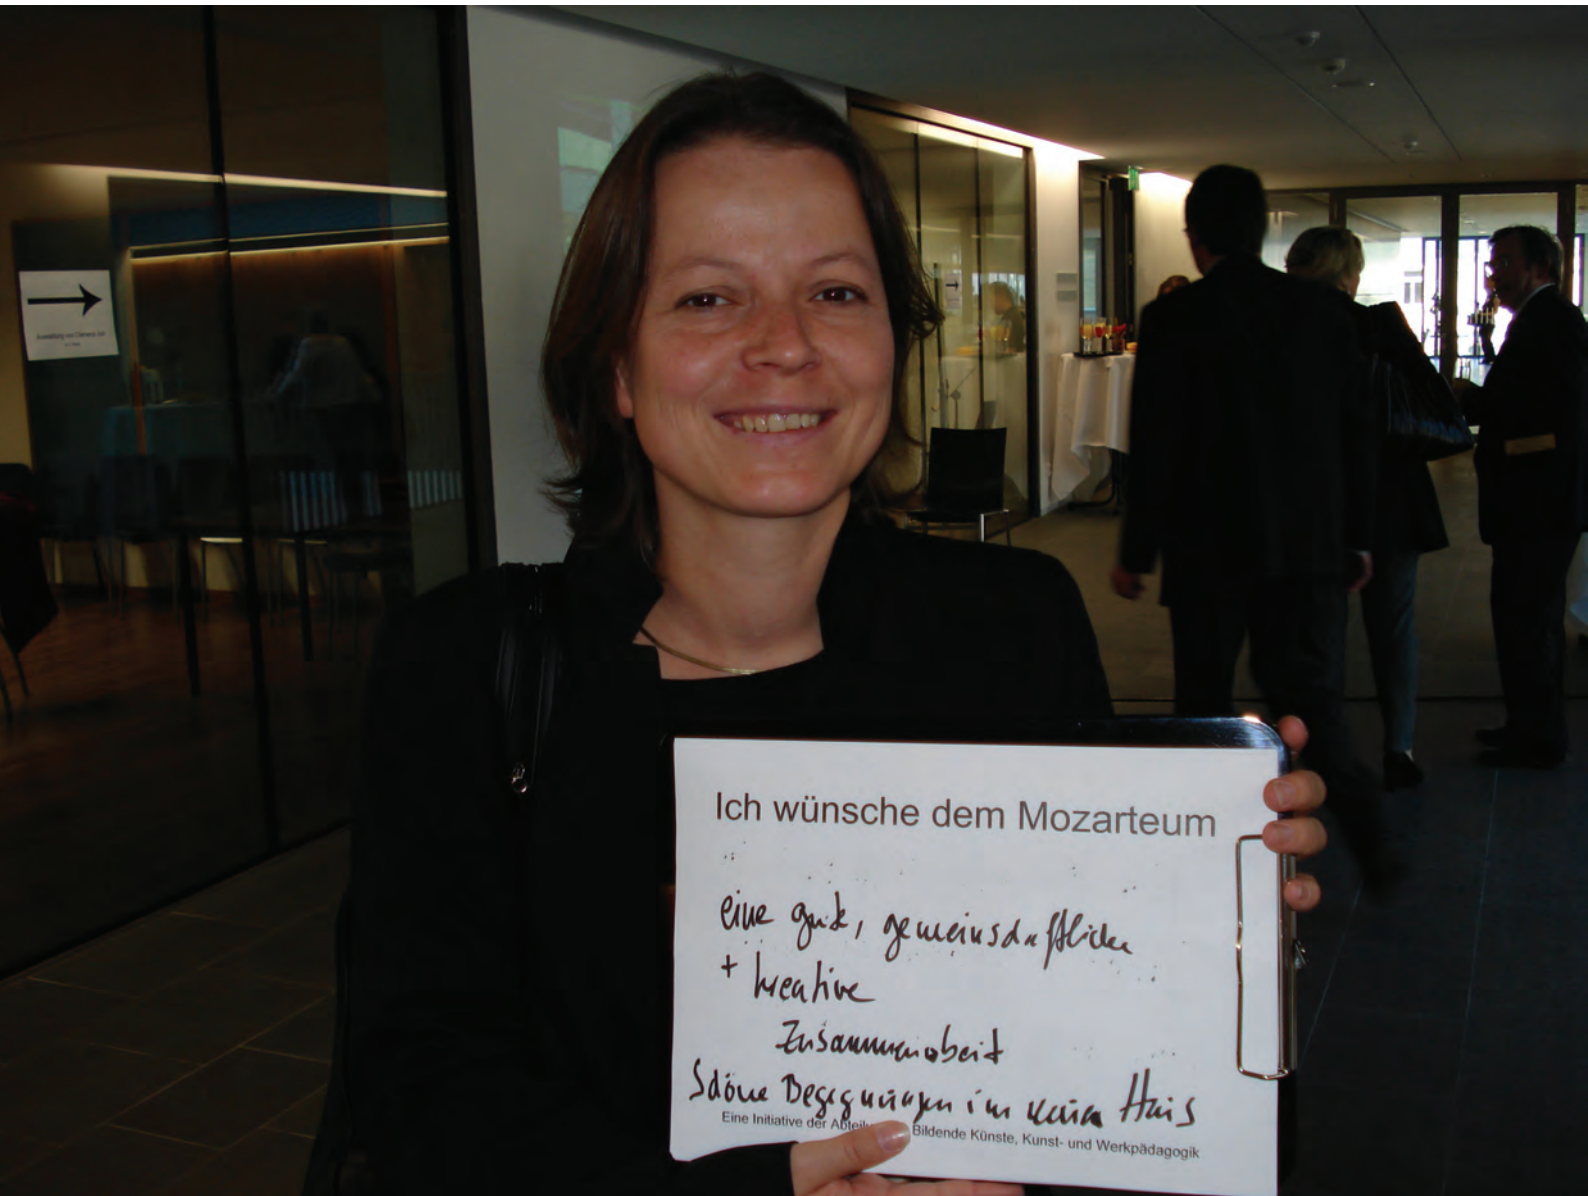 Ich wünsche dem Mozarteum
eine gute, gemeinschaftliche
+ kreative
Zusammenarbeit
Schöne Begegnungen im neuen Haus
Eine Initiative der Abteilu Bildende Künste, Kunst- und Werkpädagogik